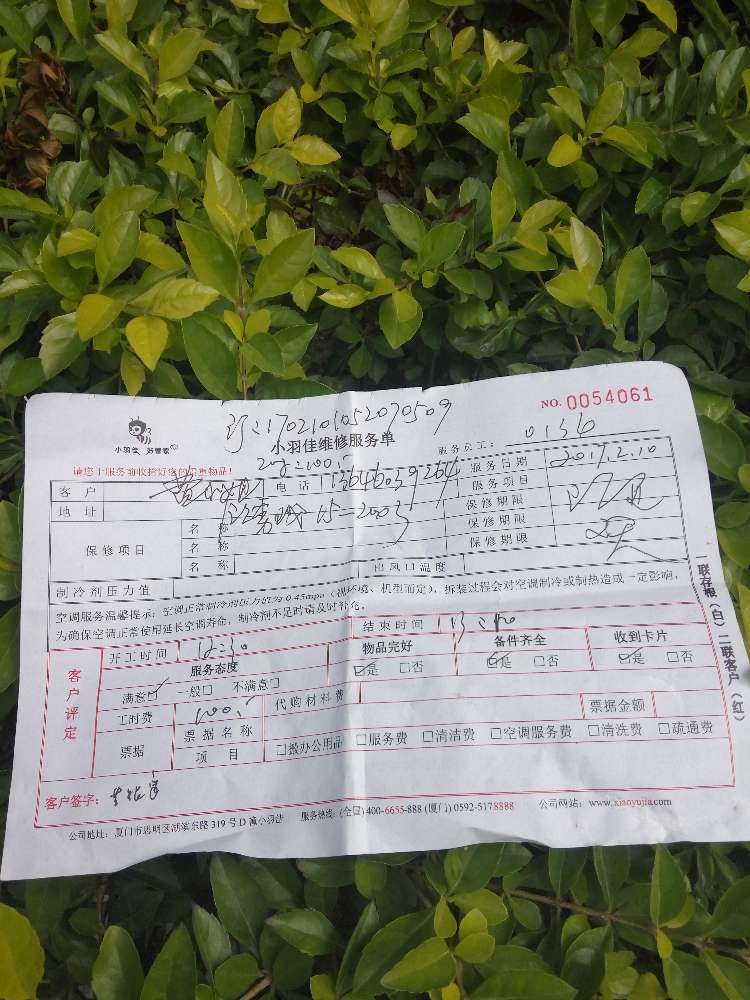 NO. 0054061
1702101052070509
小羽佳 好管家
小羽佳维修服务单
服务员工: 0136
请您于服务前收拾好您的贵重物品!
客户 电话 服务日期 2017.2.10
地址 15-2003 服务项目
保修项目 名称 保修期限
名称 保修期限
名称 保修期限
制冷剂压力值 出风口温度
空调服务温馨提示: 空调正常制冷剂压力值为0.45mpa (视环境、机型而定), 拆装过程会对空调制冷或制热造成一定影响,
为确保空调正常使用延长空调寿命, 制冷剂不足时请及时补充。
客户评定 开工时间 12:30 结束时间 13:00
服务态度 物品完好 备件齐全 收到卡片
满意□ 一般□ 不满意□ □是 □否 □是 □否 □是 □否
工时费 100. 代购材料费
票据 票据名称 票据金额
项目 □搬办公用品 □服务费 □清洁费 □空调服务费 □清洗费 □疏通费
客户签字:
公司地址: 厦门市思明区湖滨东路319号D 服务热线: (全国) 400-6655-888 (厦门) 0592-5178888 公司网站: www.xiaoyujia.com
一联存根(白) 二联客户(红)